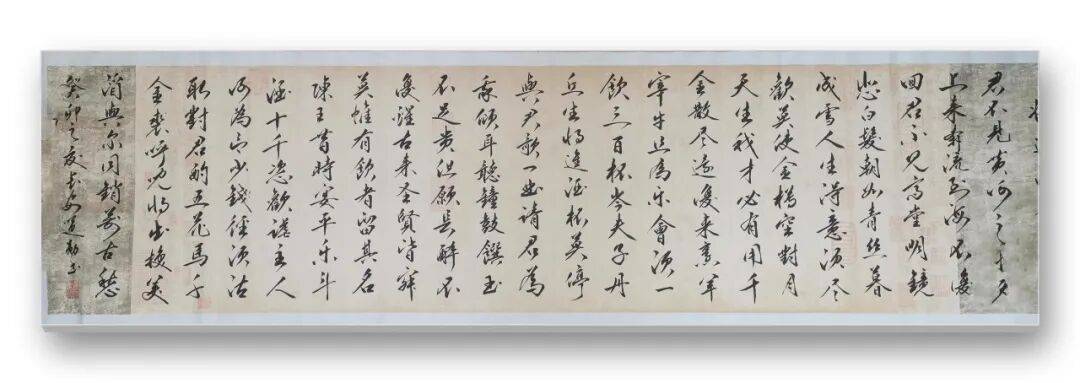 君不見黄河之水天
上来奔流到海不復
回君不見高堂明鏡
悲白髮朝如青絲暮
成雪人生得意須尽
歡莫使金樽空對月
天生我才必有用千
金散尽還復来烹羊
宰牛且為乐會須一
飲三百杯岑夫子丹
丘生将進酒杯莫停
與君歌一曲請君為
我傾耳聽鐘鼓饌玉
不足貴但願長醉不
復醒古来圣賢皆寂
莫惟有飲者留其名
陳王昔時宴平乐斗
酒十千恣歡謔主人
何為言少錢徑須沽
取對君酌五花馬千
金裘呼児将出換美
酒與尔同銷萬古愁
癸卯之夏